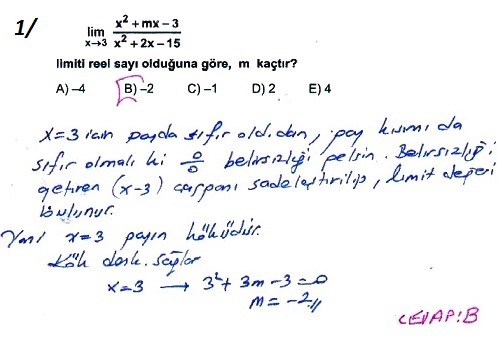 1/
lim x→3 (x² + mx – 3) / (x² + 2x – 15)
limiti reel sayı olduğuna göre, m kaçtır?
A) –4 B) –2 C) –1 D) 2 E) 4
x=3 için payda sıfır old.dan, pay kısmı da
sıfır olmalı ki 0/0 belirsizliği gelsin. Belirsizliği
getiren (x-3) çarpanı sadeleştirilip, limit değeri
bulunur.
Yani x=3 payın köküdür.
Kök denk. sağlar
x=3 → 3² + 3m - 3 = 0
m = -2//
CEVAP:B